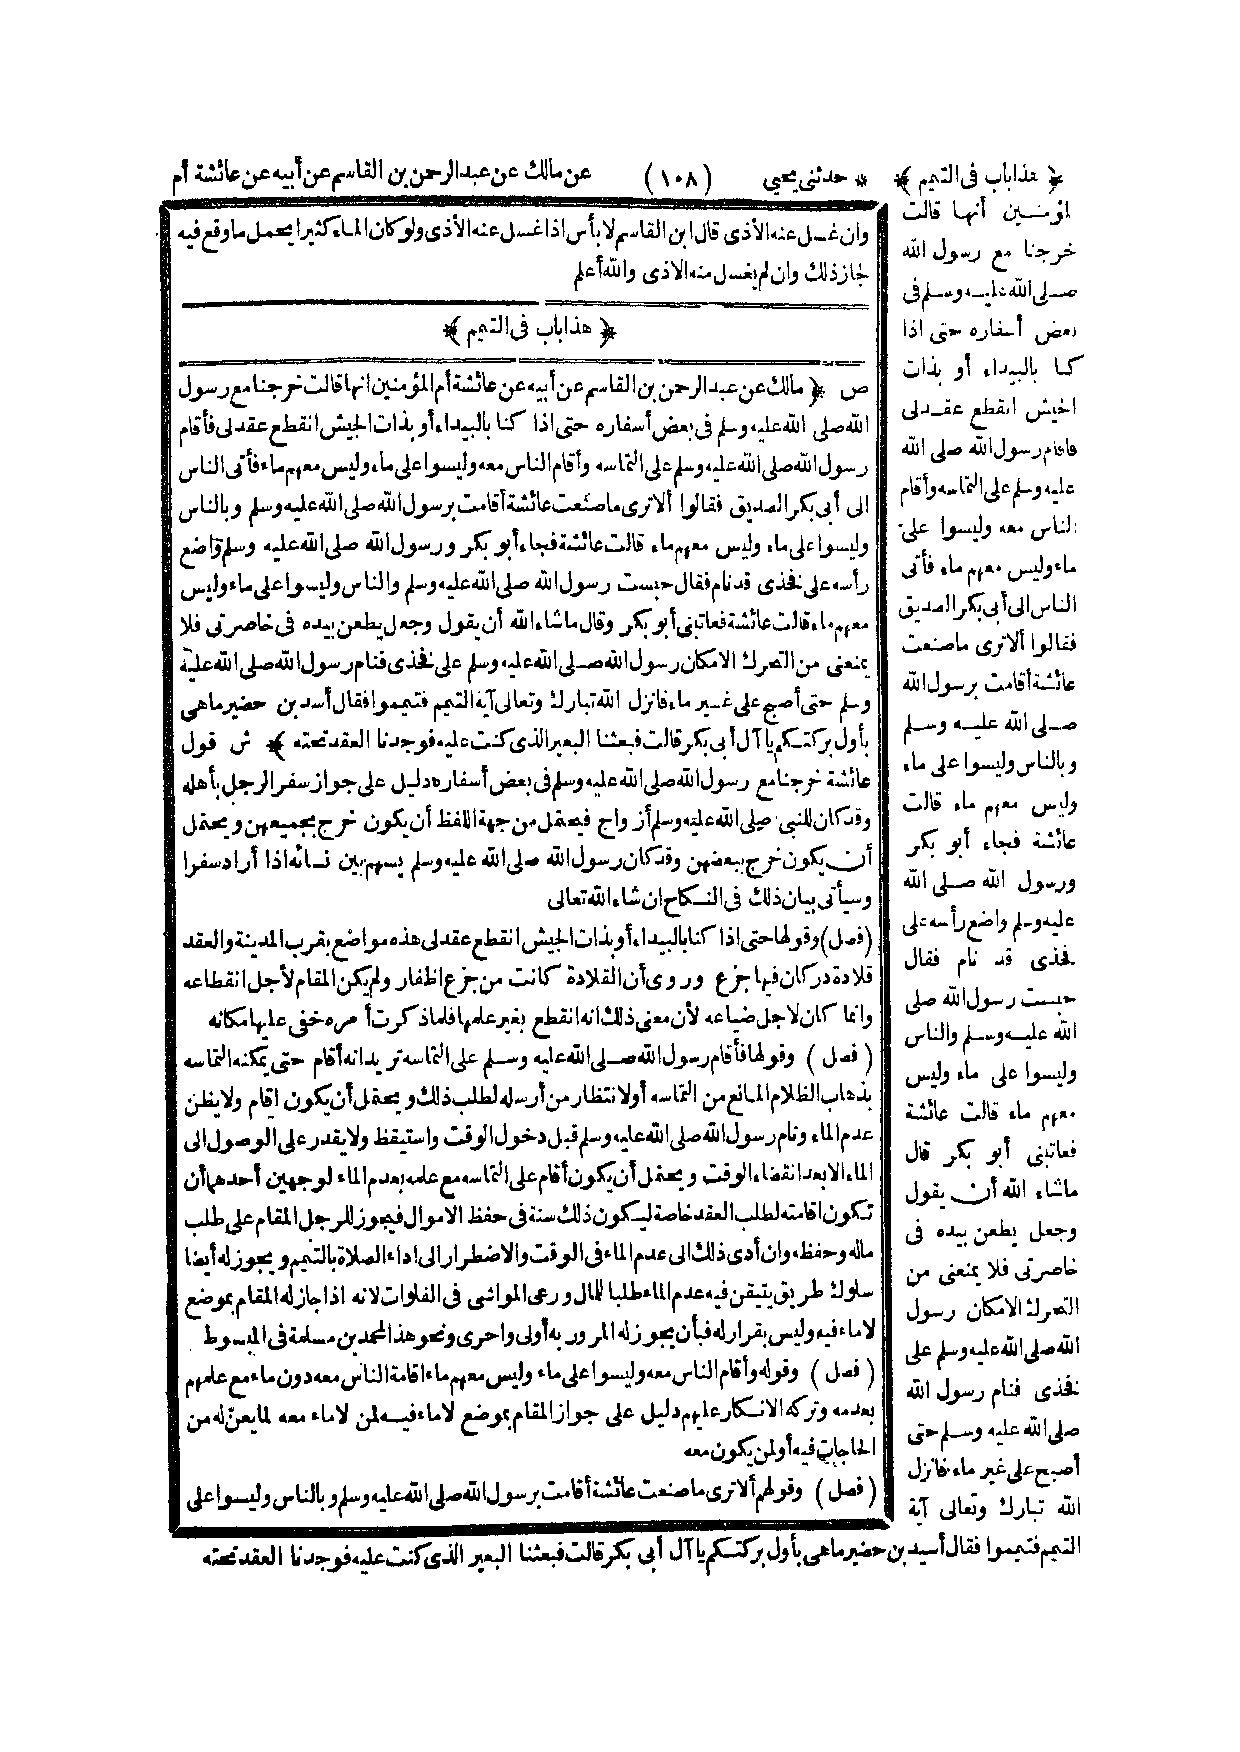 ﴿ هذا باب فى التيمم ﴾ * حدثنى يحيى (١٠٨) عن مالك عن عبد الرحمن بن القاسم عن أبيه عن عائشة أم
المؤمنين أنها قالت
خرجنا مع رسول الله
صلى الله عليه وسلم فى
بعض أسفاره حتى اذا
كنا بالبيداء أو بذات
الجيش انقطع عقد لى
فاقام رسول الله صلى الله
عليه وسلم على التماسه وأقام
الناس معه وليسوا على
ماء وليس معهم ماء فأتى
الناس الى أبى بكر الصديق
فقالوا ألا ترى ما صنعت
عائشة أقامت برسول الله
صلى الله عليه وسلم
وبالناس وليسوا على ماء
وليس معهم ماء قالت
عائشة فجاء أبو بكر
ورسول الله صلى الله
عليه وسلم واضع رأسه على
فخذى قد نام فقال
حبست رسول الله صلى
الله عليه وسلم والناس
وليسوا على ماء وليس
معهم ماء قالت عائشة
فعاتبنى أبو بكر قال
ماشاء الله أن يقول
وجعل يطعن بيده فى
خاصرتى فلا يمنعنى من
التحرك الا مكان رسول
الله صلى الله عليه وسلم على
فخذى فنام رسول الله
صلى الله عليه وسلم حتى
أصبح على غير ماء فانزل
الله تبارك وتعالى آية
التيمم فتيمموا فقال أسيد بن حضير ما هى بأول بركتكم يا آل أبى بكر قالت فبعثنا البعير الذى كنت عليه فوجدنا العقد تحته
وان غسل عنه الأذى قال ابن القاسم لا بأس اذا غسل عنه الأذى ولو كان الماء كثيرا يحمل ما وقع فيه
لجاز ذلك وان لم يغسل منه الاذى والله أعلم
﴿ هذا باب فى التيمم ﴾
ص ﴿ مالك عن عبد الرحمن بن القاسم عن أبيه عن عائشة أم المؤمنين انها قالت خرجنا مع رسول
الله صلى الله عليه وسلم فى بعض أسفاره حتى اذا كنا بالبيداء أو بذات الجيش انقطع عقد لى فأقام
رسول الله صلى الله عليه وسلم على التماسه وأقام الناس معه وليسوا على ماء وليس معهم ماء فأتى الناس
الى أبى بكر الصديق فقالوا ألا ترى ما صنعت عائشة أقامت برسول الله صلى الله عليه وسلم وبالناس
وليسوا على ماء وليس معهم ماء قالت عائشة فجاء أبو بكر ورسول الله صلى الله عليه وسلم واضع
رأسه على فخذى قد نام فقال حبست رسول الله صلى الله عليه وسلم والناس وليسوا على ماء وليس
معهم ماء قالت عائشة فعاتبنى أبو بكر وقال ما شاء الله أن يقول وجعل يطعن بيده فى خاصرتى فلا
يمنعنى من التحرك الا مكان رسول الله صلى الله عليه وسلم على فخذى فنام رسول الله صلى الله عليه
وسلم حتى أصبح على غير ماء فانزل الله تبارك وتعالى آية التيمم فتيمموا فقال أسيد بن حضير ما هى
بأول بركتكم يا آل أبى بكر قالت فبعثنا البعير الذى كنت عليه فوجدنا العقد تحته ﴾ ش قول
عائشة خرجنا مع رسول الله صلى الله عليه وسلم فى بعض أسفاره دليل على جواز سفر الرجل بأهله
وقد كان للنبى صلى الله عليه وسلم أزواج فيحتمل من جهة اللفظ أن يكون خرج بجميعهن ويحتمل
أن يكون خرج ببعضهن وقد كان رسول الله صلى الله عليه وسلم يسهم بين نسائه اذا أراد سفرا
وسيأتى بيان ذلك فى النكاح ان شاء الله تعالى
(فصل) وقولها حتى اذا كنا بالبيداء أو بذات الجيش انقطع عقد لى هذه مواضع بقرب المدينة والعقد
قلادة در كان فيها جزع وروى أن القلادة كانت من جزع اظفار ولم يكن المقام لأجل انقطاعه
وانما كان لاجل ضياعه لأن معنى ذلك انه انقطع بغير علمها فلما ذكرت أمره خفى عليها مكانه
(فصل) وقولها فأقام رسول الله صلى الله عليه وسلم على التماسه تريد انه أقام حتى يمكنه التماسه
بذهاب الظلام المانع من التماسه أو لانتظار من أرسله لطلب ذلك ويحتمل أن يكون اقام ولا يظن
عدم الماء ونام رسول الله صلى الله عليه وسلم قبل دخول الوقت واستيقظ ولا يقدر على الوصول الى
الماء الا بعد انقضاء الوقت ويحتمل أن يكون أقام على التماسه مع علمه بعدم الماء لوجهين أحدهما أن
تكون اقامته لطلب العقد خاصة ليكون ذلك سنة فى حفظ الاموال فيجوز للرجل المقام على طلب
ماله وحفظه وان أدى ذلك الى عدم الماء فى الوقت والاضطرار الى اداء الصلاة بالتيمم ويجوز له أيضا
سلوك طريق يتيقن فيه عدم الماء طلبا للمال ورعى المواشى فى الفلوات لانه اذا جاز له المقام بموضع
لا ماء فيه وليس بقرار له فبأن يجوز له المرور به أولى وأحرى ونحو هذا لمحمد بن مسلمة فى المبسوط
(فصل) وقوله وأقام الناس معه وليسوا على ماء وليس معهم ماء اقامة الناس معه دون ماء مع علمهم
بعدمه وتركه الانكار عليهم دليل على جواز المقام بموضع لا ماء فيه لمن لا ماء معه لما يعن له من
الحاجات فيه أو لمن يكون معه
(فصل) وقولهم ألا ترى ما صنعت عائشة أقامت برسول الله صلى الله عليه وسلم وبالناس وليسوا على